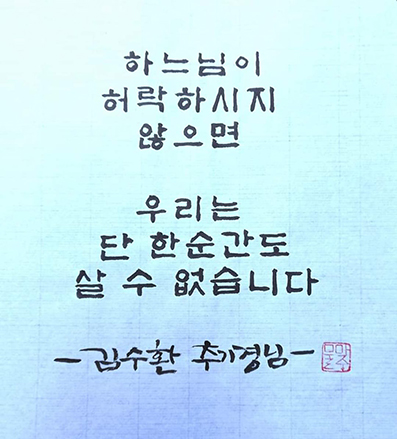 하느님이
허락하시지
않으면
우리는
단 한순간도
살 수 없습니다
-김수환 추기경님-